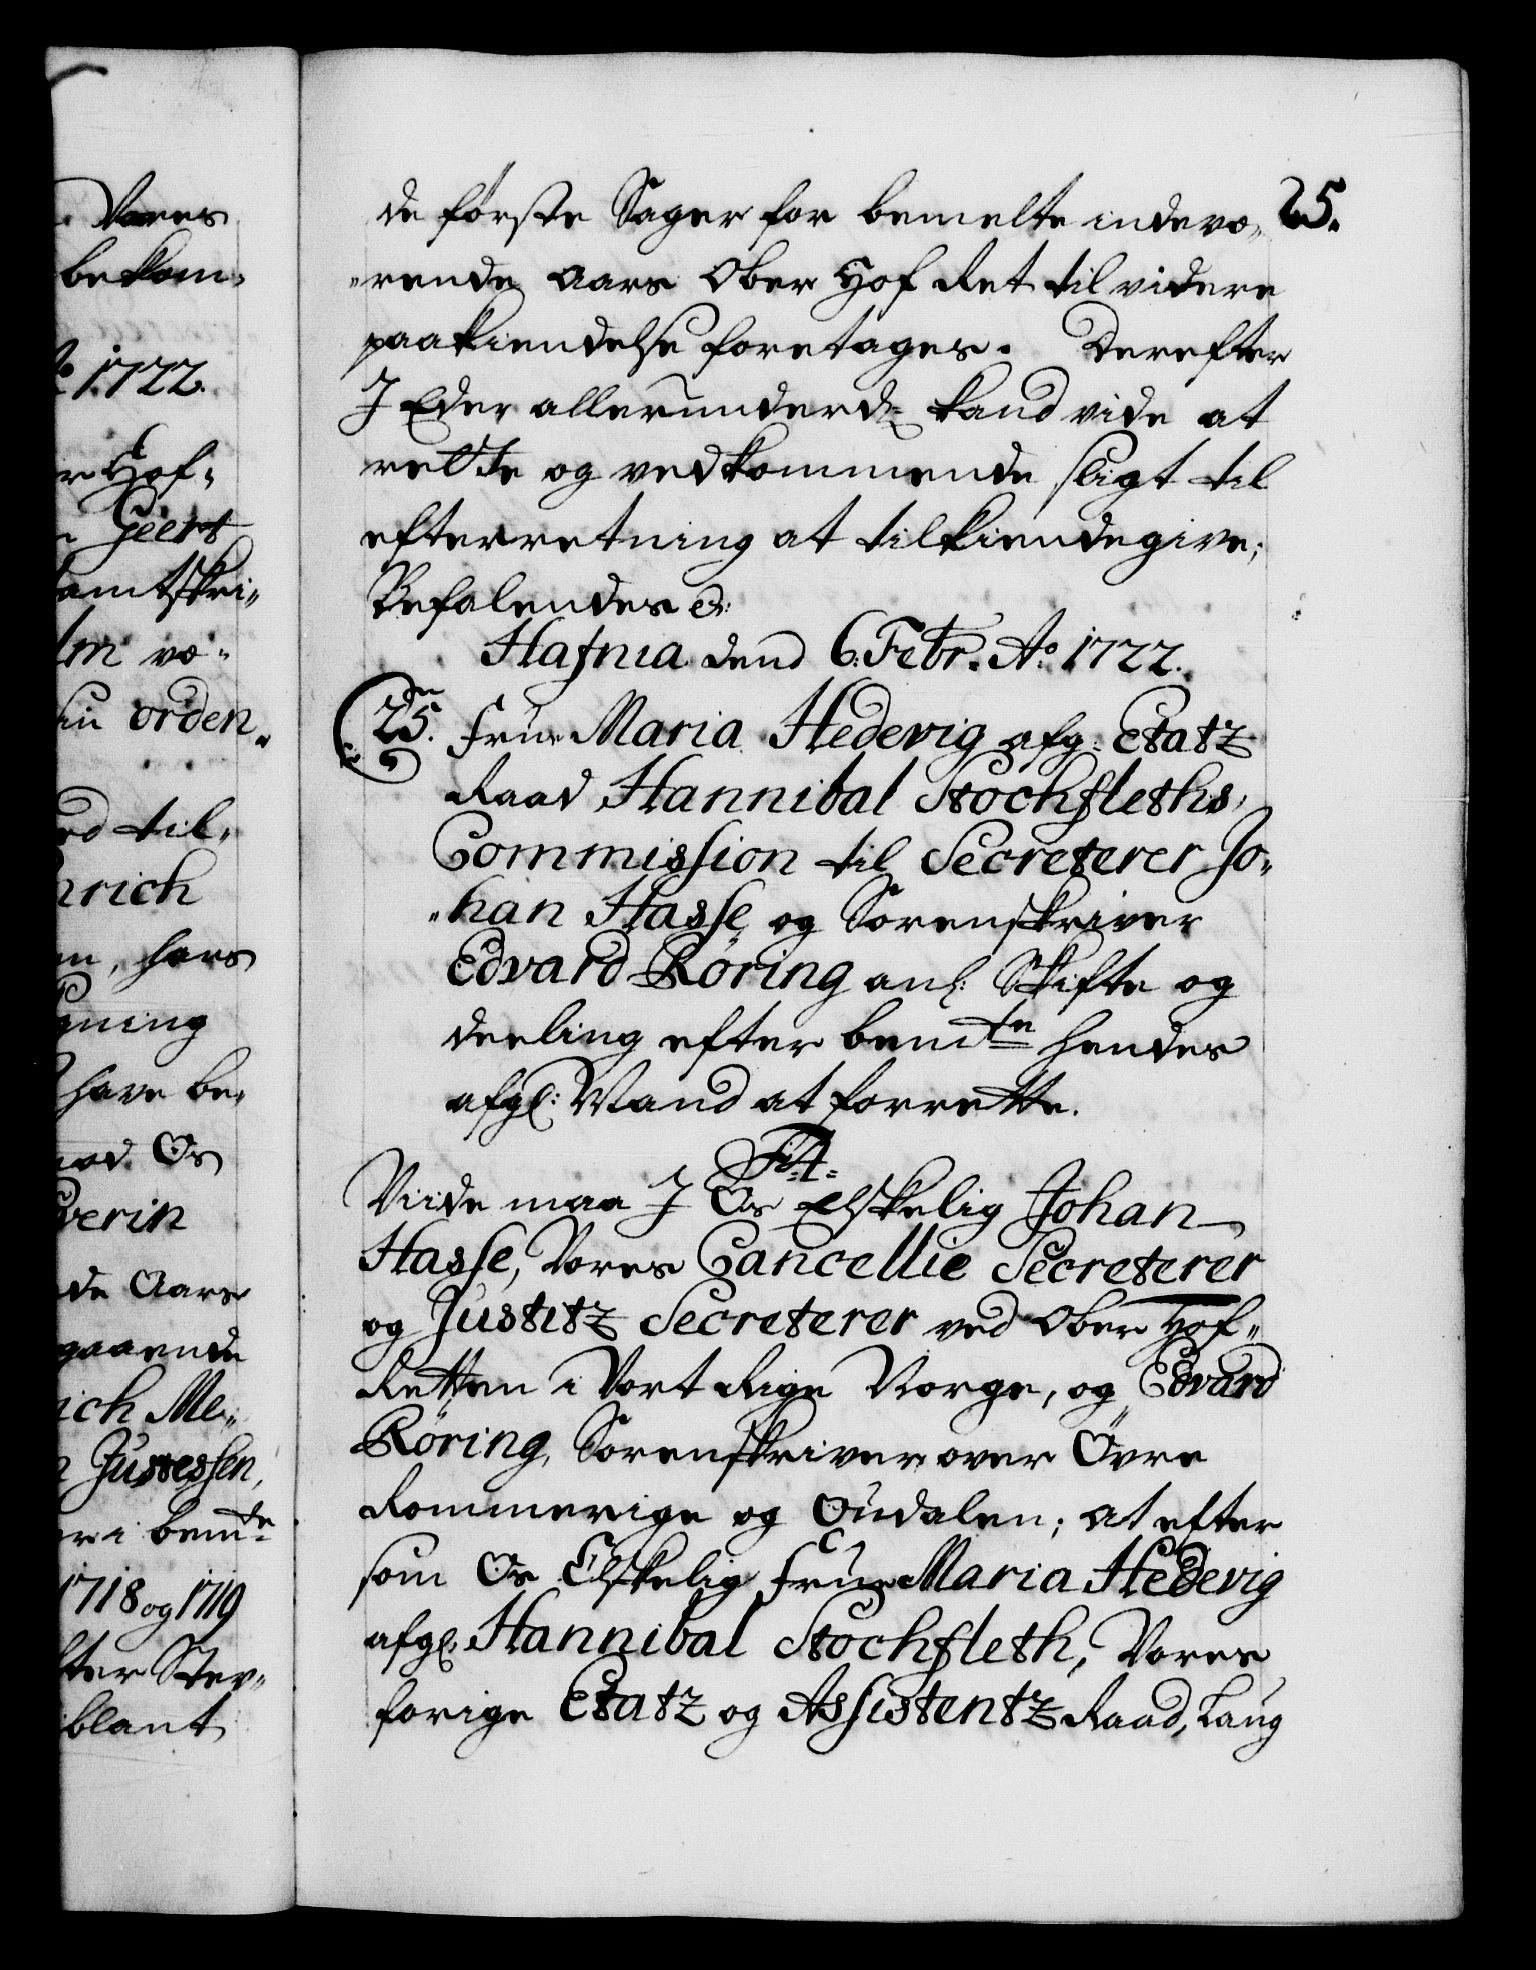 Vores
bekom„
1722.
r Hof„
Geert
amtskri„
lm væ„
sin orden„
ed til„
nrich
en, hans
gning
have be„
mod Os
verin
de Aars
gaaende
ich Me„
Justessen,
er i bemte
1718 og 1719
fter Stev„
blant
25.
de første Sager for bemelte indevæ„
„rende Aars Ober Hof Ret til videre
paakiendelse foretages. Derefter
I Eder allerunderd: kand vide at
rette og vedkommende sligt til
efterretning at tilkiendegive;
Befalendes etc:
Hafnia dend 6. Febr. Ao. 1722.
25. Frue Maria Hedevig afg: Etatz
Raad Hannibal Stochfleths,
Commission til Secreterer Jo„
„han Hasse, og Sorenskriver
Edvard Röring anl: Skifte og
deeling efter bemte hendes
afgl: Mand at forrette.
F:4.
Viide maa I Os Elskelig Johan
Hasse, Vores Cancellie Secreterer
og Justitz Secreterer ved Ober Hof„
Retten i Vort Rige Norge, og Edvard
Röring, Sorenskriver over Øvre
Rommerige og Oudalen; at efter
som Os Elskelig Frue Maria Hedevig
afgl. Hannibal Stochfleth, Vores
forige Etatz og Assistentz Raad, Laug